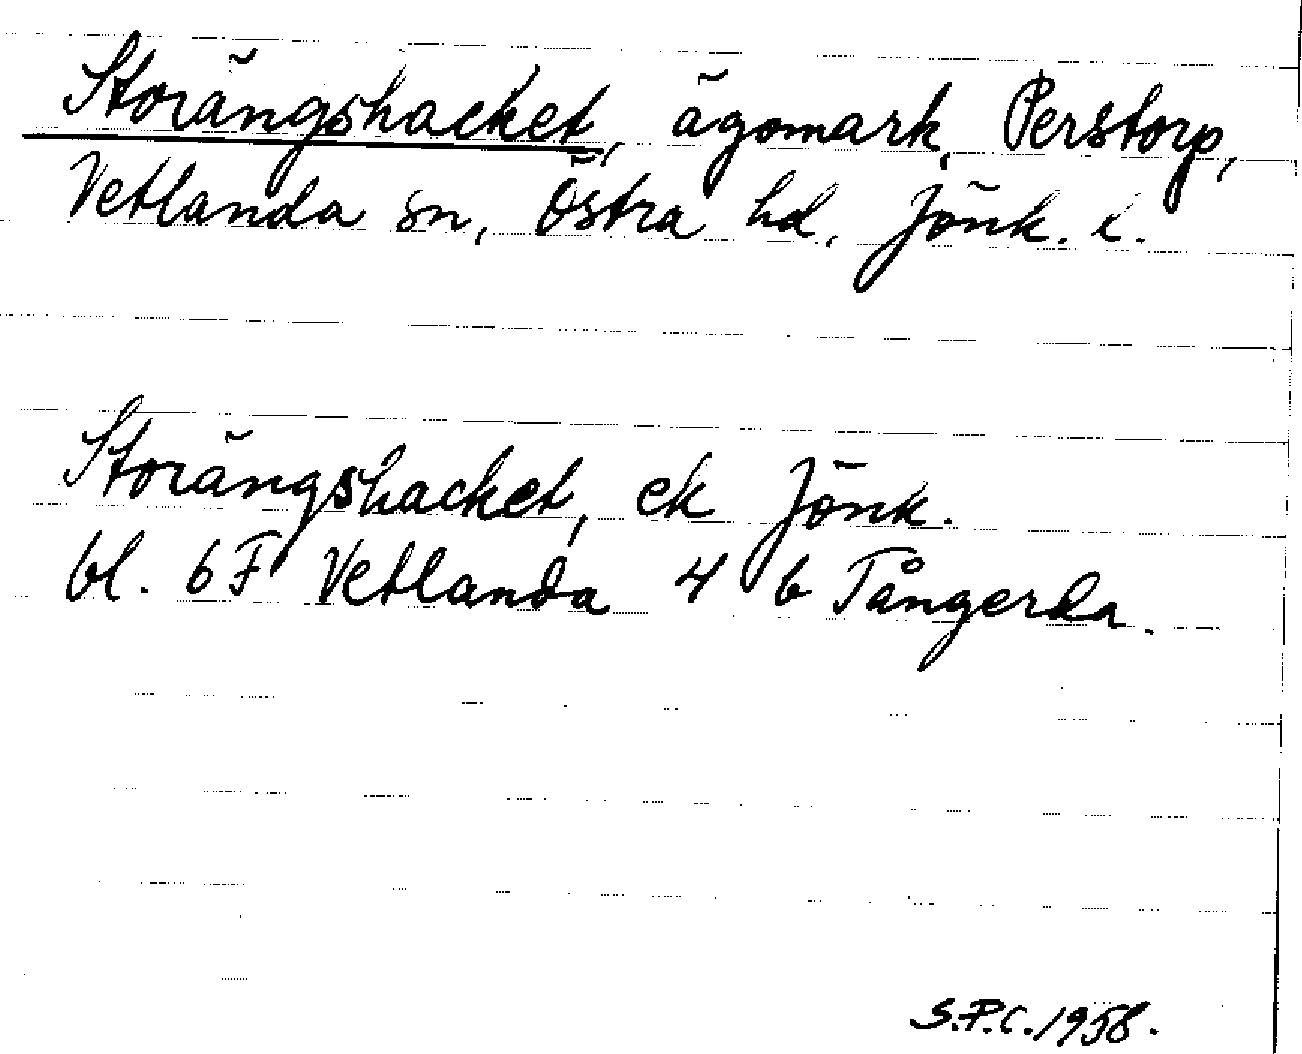 Storängshacket, ägomark, Perstorp,
Vetlanda sn, Östra hd, Jönk. l.
Storängshacket, ek Jönk.
bl. 6 F Vetlanda 4 b Tångerda.
S.P.C. 1958.